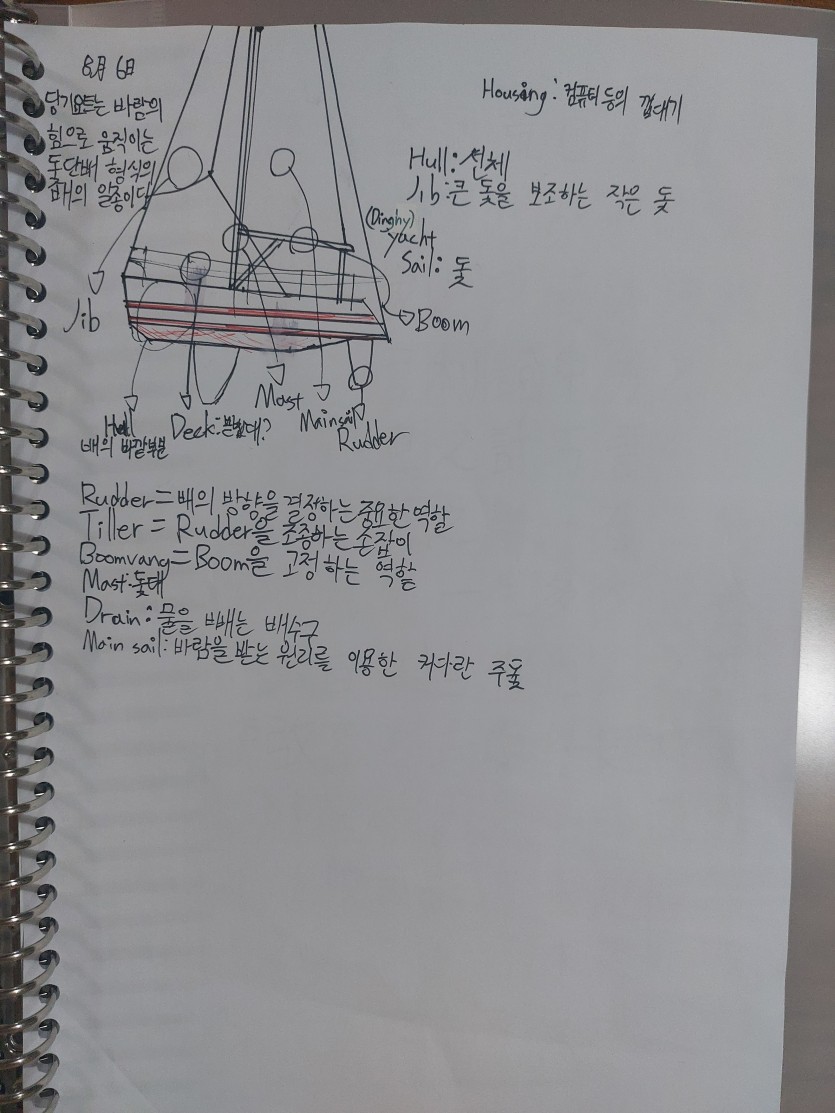 8月 6日
딩기요트는 바람의
힘으로 움직이는
돛단배 형식의
배의 일종이다
Housing: 컴퓨터 등의 껍대기
Hull: 선체
Jib: 큰 돛을 보조하는 작은 돛
(Dinghy)
yacht
Sail: 돛
Jib
Boom
Mast
Mainsail
Rudder
Hull
배의 바깥부분
Deck:
Rudder=배의 방향을 결정하는 중요한 역할
Tiller = Rudder을 조종하는 손잡이
Boomvang=Boom을 고정하는 역할
Mast:돛대
Drain: 물을 빼는 배수구
Main sail: 바람을 받는 원리를 이용한 커다란 주돛